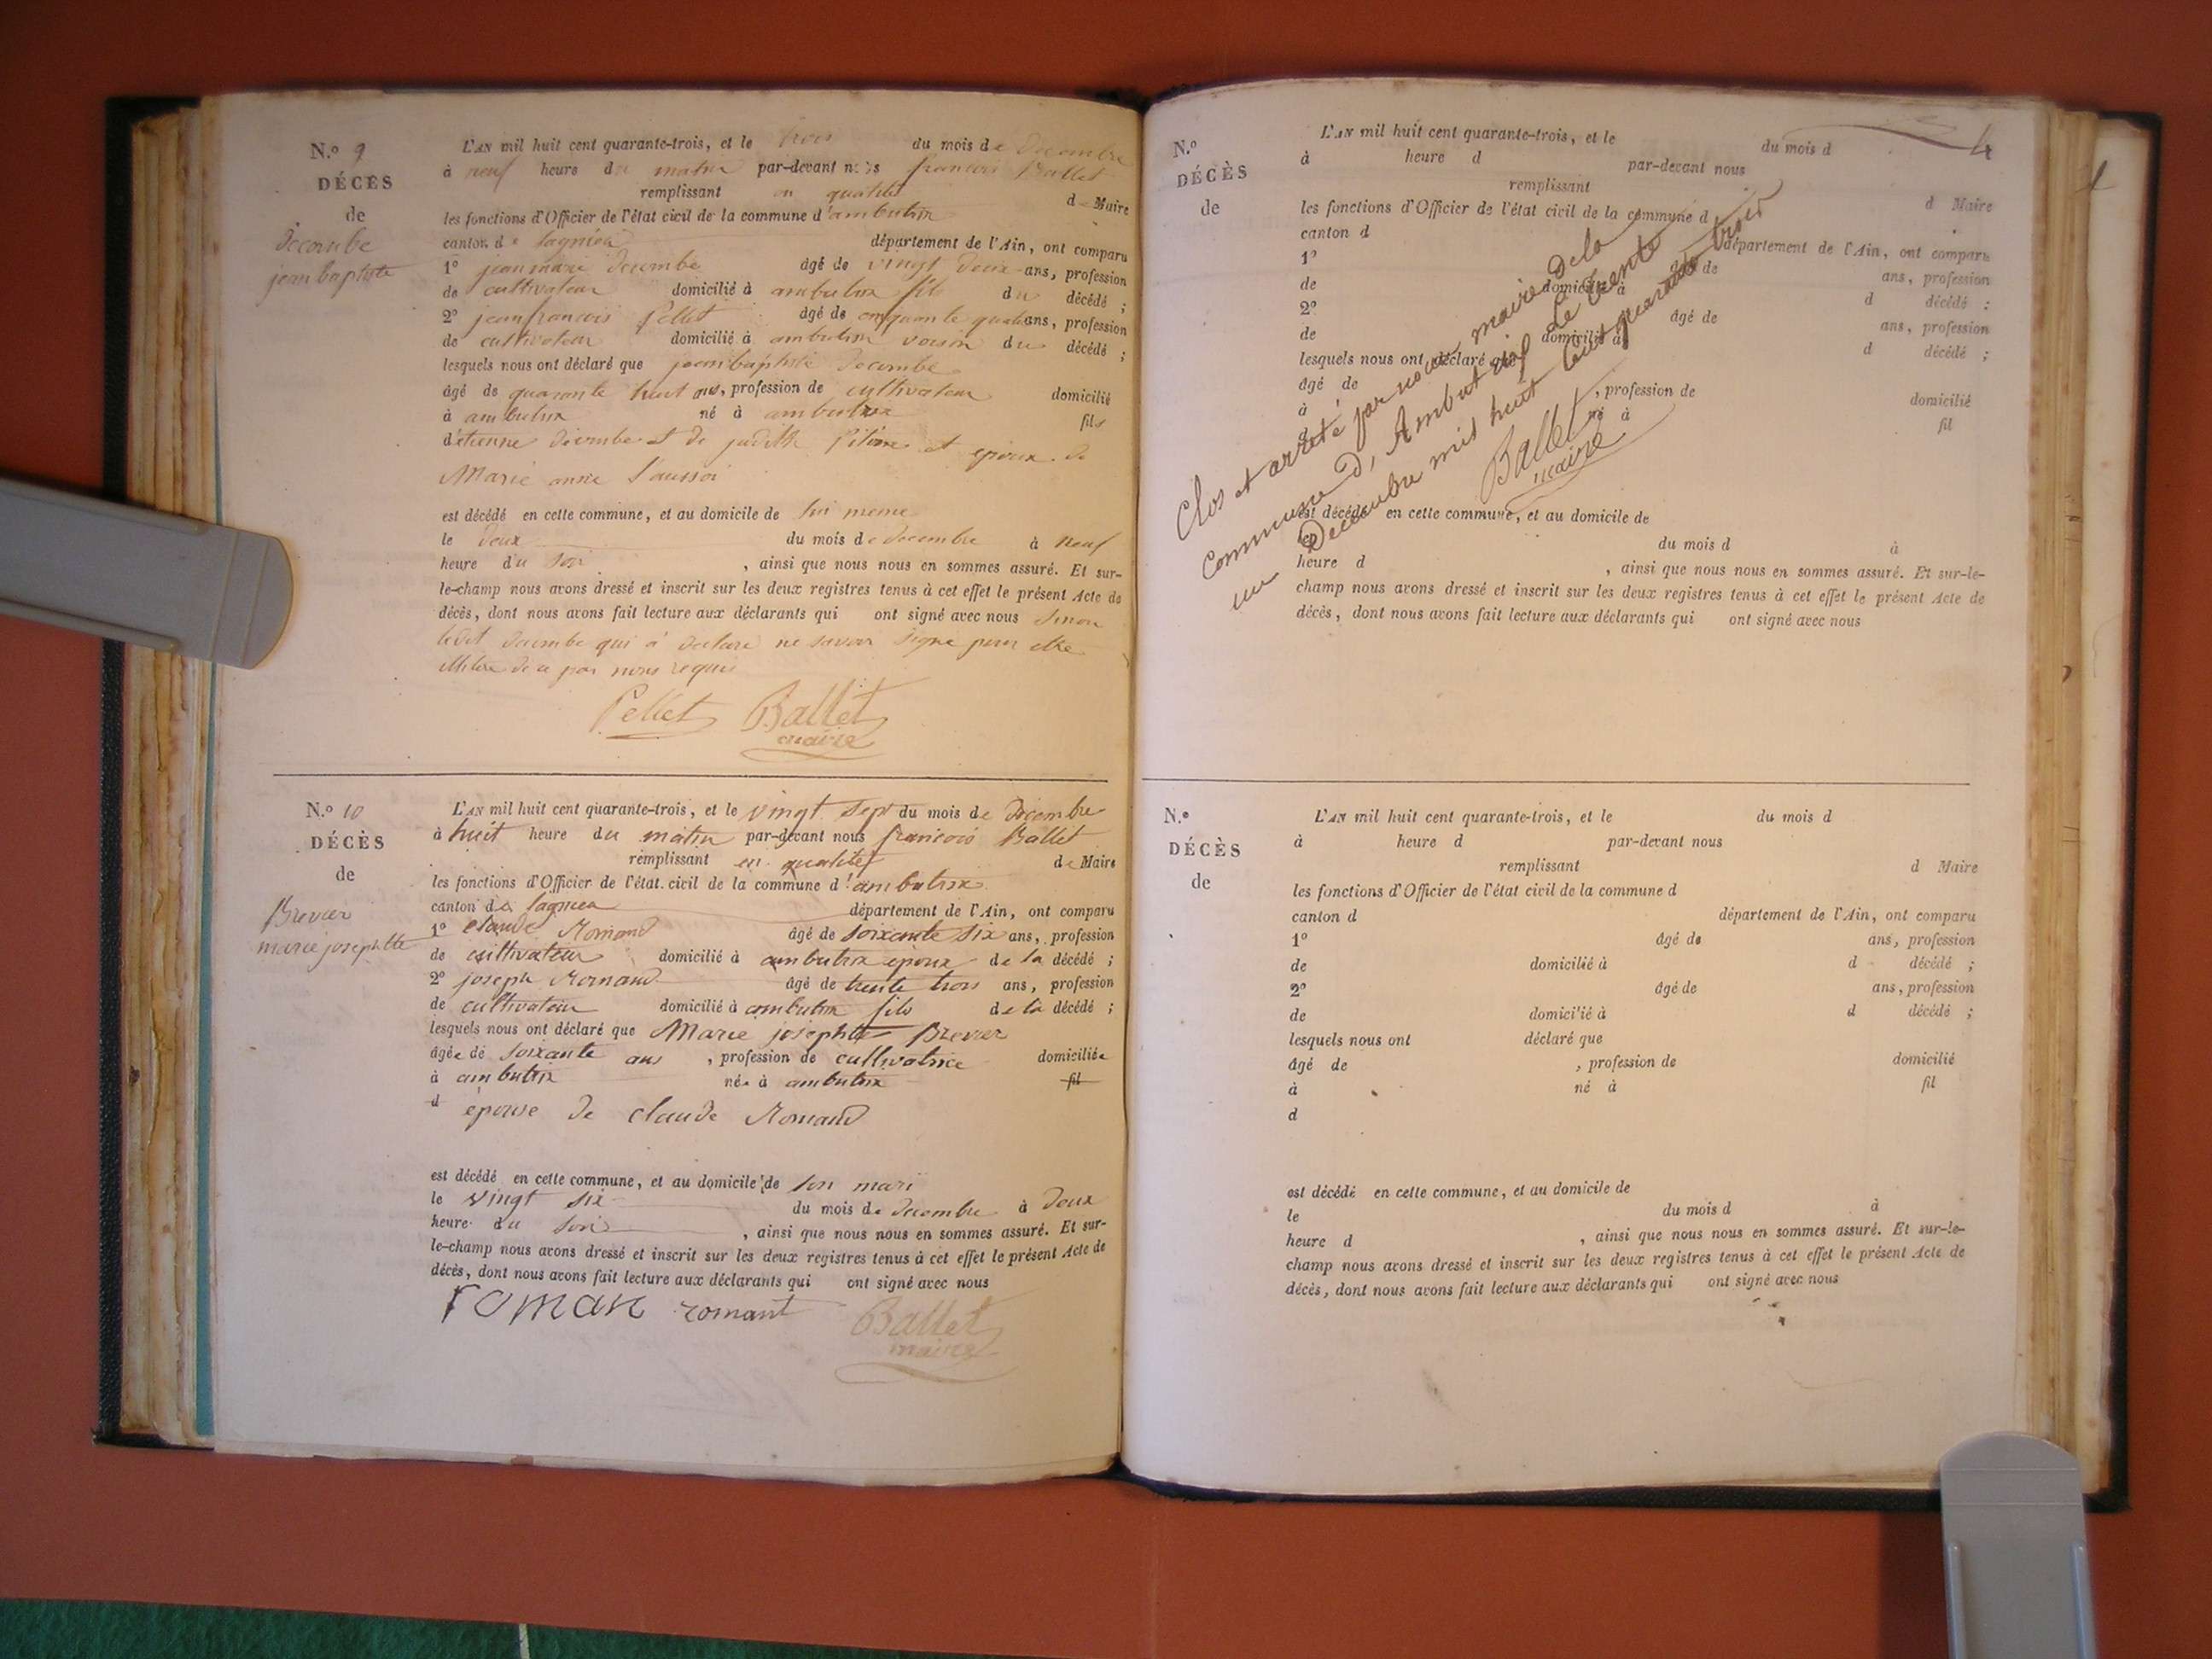 N.o 9
DÉCÈS
de
decombe
jean baptiste
L'AN mil huit cent quarante-trois, et le trois du mois de decembre
à neuf heure du matin par-devant nous francois Ballet
remplissant en qualité de Maire
les fonctions d'Officier de l'état civil de la commune d'ambutrix
canton de lagnieu département de l'Ain, ont comparu
1o jean marie decombe âgé de vingt deux ans, profession
de cultivateur domicilié à ambutrix fils du décédé ;
2o jean francois Pellet âgé de cinquante quatre ans, profession
de cultivateur domicilié à ambutrix voisin du décédé ;
lesquels nous ont déclaré que jean baptiste decombe
âgé de quarante huit ans, profession de cultivateur domicilié
à ambutrix né à ambutrix fils
d'etienne decombe et de judith et epoux de
Marie anne
est décédé en cette commune, et au domicile de lui meme
le deux du mois de decembre à neuf
heure du soir , ainsi que nous nous en sommes assuré. Et sur-
le-champ nous avons dressé et inscrit sur les deux registres tenus à cet effet le présent Acte de
décès, dont nous avons fait lecture aux déclarants qui ont signé avec nous sinon
ledit decombe qui a declaré ne savoir signé pour etre
illitere de ce par nous requis
Pellet Ballet
maire
N.o 10
DÉCÈS
de
Brevier
marie josephtte
L'AN mil huit cent quarante-trois, et le vingt sept du mois de decembre
à huit heure du matin par-devant nous francois Ballet
remplissant en qualité de Maire
les fonctions d'Officier de l'état civil de la commune d'ambutrix
canton de lagnieu département de l'Ain, ont comparu
1o claude Romand âgé de soixante six ans, profession
de cultivateur domicilié à ambutrix epoux de la décédé ;
2o joseph Romand âgé de trente trois ans, profession
de cultivateur domicilié à ambutrix fils de la décédé ;
lesquels nous ont déclaré que Marie josephtte Brevier
âgée de soixante ans , profession de cultivatrice domiciliée
à ambutrix née à ambutrix fil
d épouse de claude Romand
est décédé en cette commune, et au domicile de son mari
le vingt six du mois de decembre à deux
heure du soir , ainsi que nous nous en sommes assuré. Et sur-
le-champ nous avons dressé et inscrit sur les deux registres tenus à cet effet le présent Acte de
décès, dont nous avons fait lecture aux déclarants qui ont signé avec nous
roman romant Ballet
maire
4
N.o
DÉCÈS
de
L'AN mil huit cent quarante-trois, et le du mois d
à heure d par-devant nous
remplissant d Maire
les fonctions d'Officier de l'état civil de la commune d
canton d département de l'Ain, ont comparu
1o âgé de ans, profession
de domicilié à d décédé ;
2o âgé de ans, profession
de domicilié à d décédé ;
lesquels nous ont déclaré que
âgé de , profession de domicilié
à né à fil
d
Clos et arreté par nous maire de la
commune d'Ambutrix le trente
un Decembre mil huit cent quarante trois
Ballet
maire
est décédé en cette commune, et au domicile de
le du mois d à
heure d , ainsi que nous nous en sommes assuré. Et sur-le-
champ nous avons dressé et inscrit sur les deux registres tenus à cet effet le présent Acte de
décès, dont nous avons fait lecture aux déclarants qui ont signé avec nous
N.o
DÉCÈS
de
L'AN mil huit cent quarante-trois, et le du mois d
à heure d par-devant nous
remplissant d Maire
les fonctions d'Officier de l'état civil de la commune d
canton d département de l'Ain, ont comparu
1o âgé de ans, profession
de domicilié à d décédé ;
2o âgé de ans, profession
de domicilié à d décédé ;
lesquels nous ont déclaré que
âgé de , profession de domicilié
à né à fil
d
est décédé en cette commune, et au domicile de
le du mois d à
heure d , ainsi que nous nous en sommes assuré. Et sur-le-
champ nous avons dressé et inscrit sur les deux registres tenus à cet effet le présent Acte de
décès, dont nous avons fait lecture aux déclarants qui ont signé avec nous